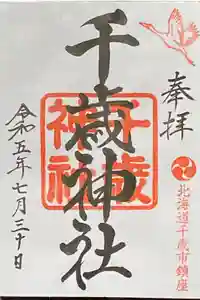 奉拝
北海道千歳市鎮座
千歳神社
千歳神社
令和五年七月三十日